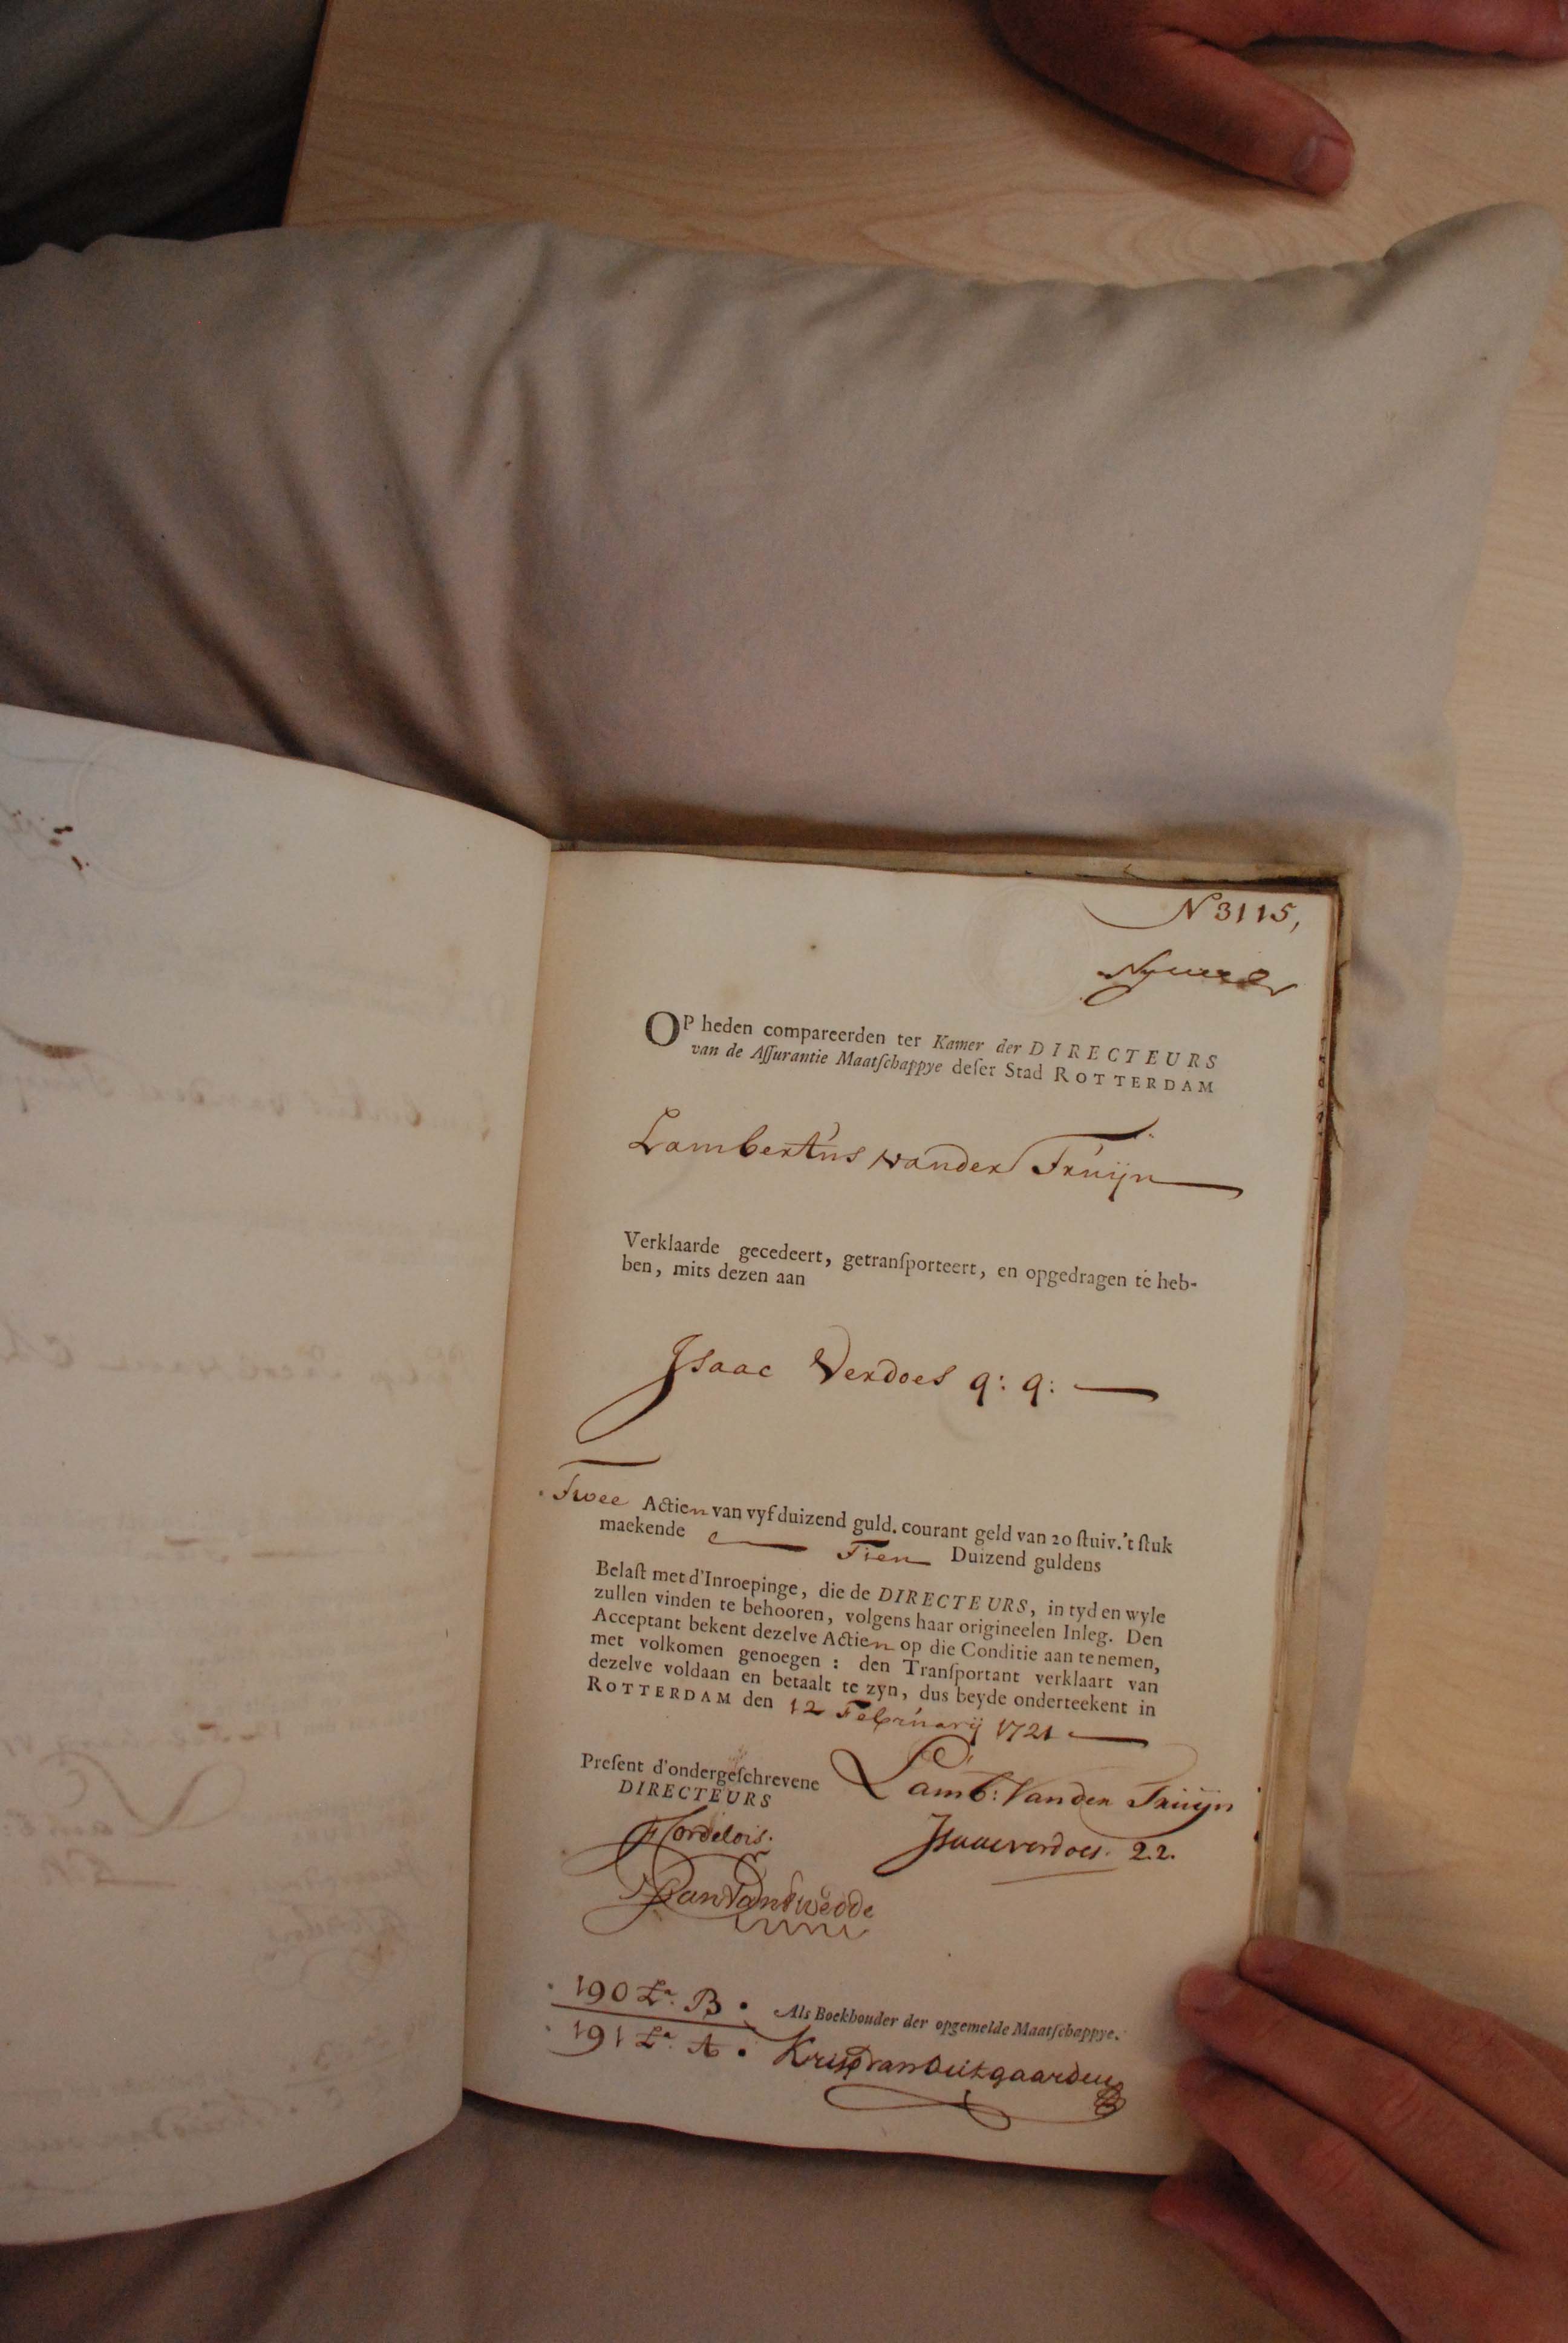 N 3115,
OP heden compareerden ter Kamer der DIRECTEURS
van de Aſſurantie Maatſchappye deſer Stad ROTTERDAM
Lambertús vander Trúijn
Verklaarde gecedeert, getranſporteert, en opgedragen te heb-
ben, mits dezen aan
Isaac Verdoes q: q:
Twee Actien van vyf duizend guld. courant geld van 20 ſtuiv. 't ſtuk
maekende Tien Duizend guldens
Belaſt met d'Inroepinge, die de DIRECTEURS, in tyd en wyle
zullen vinden te behooren, volgens haar origineelen Inleg. Den
Acceptant bekent dezelve Actien op die Conditie aan te nemen,
met volkomen genoegen : den Tranſportant verklaart van
dezelve voldaan en betaalt te zyn, dus beyde onderteekent in
ROTTERDAM den 12 Febrúarij 1721
Preſent d'ondergeſchrevene
DIRECTEURS
Lamb: Vander Trúijn
Isaac verdoes. q.q.
190 La. B.
191 La. A.
Als Boekhouder der opgemelde Maatſchappye.